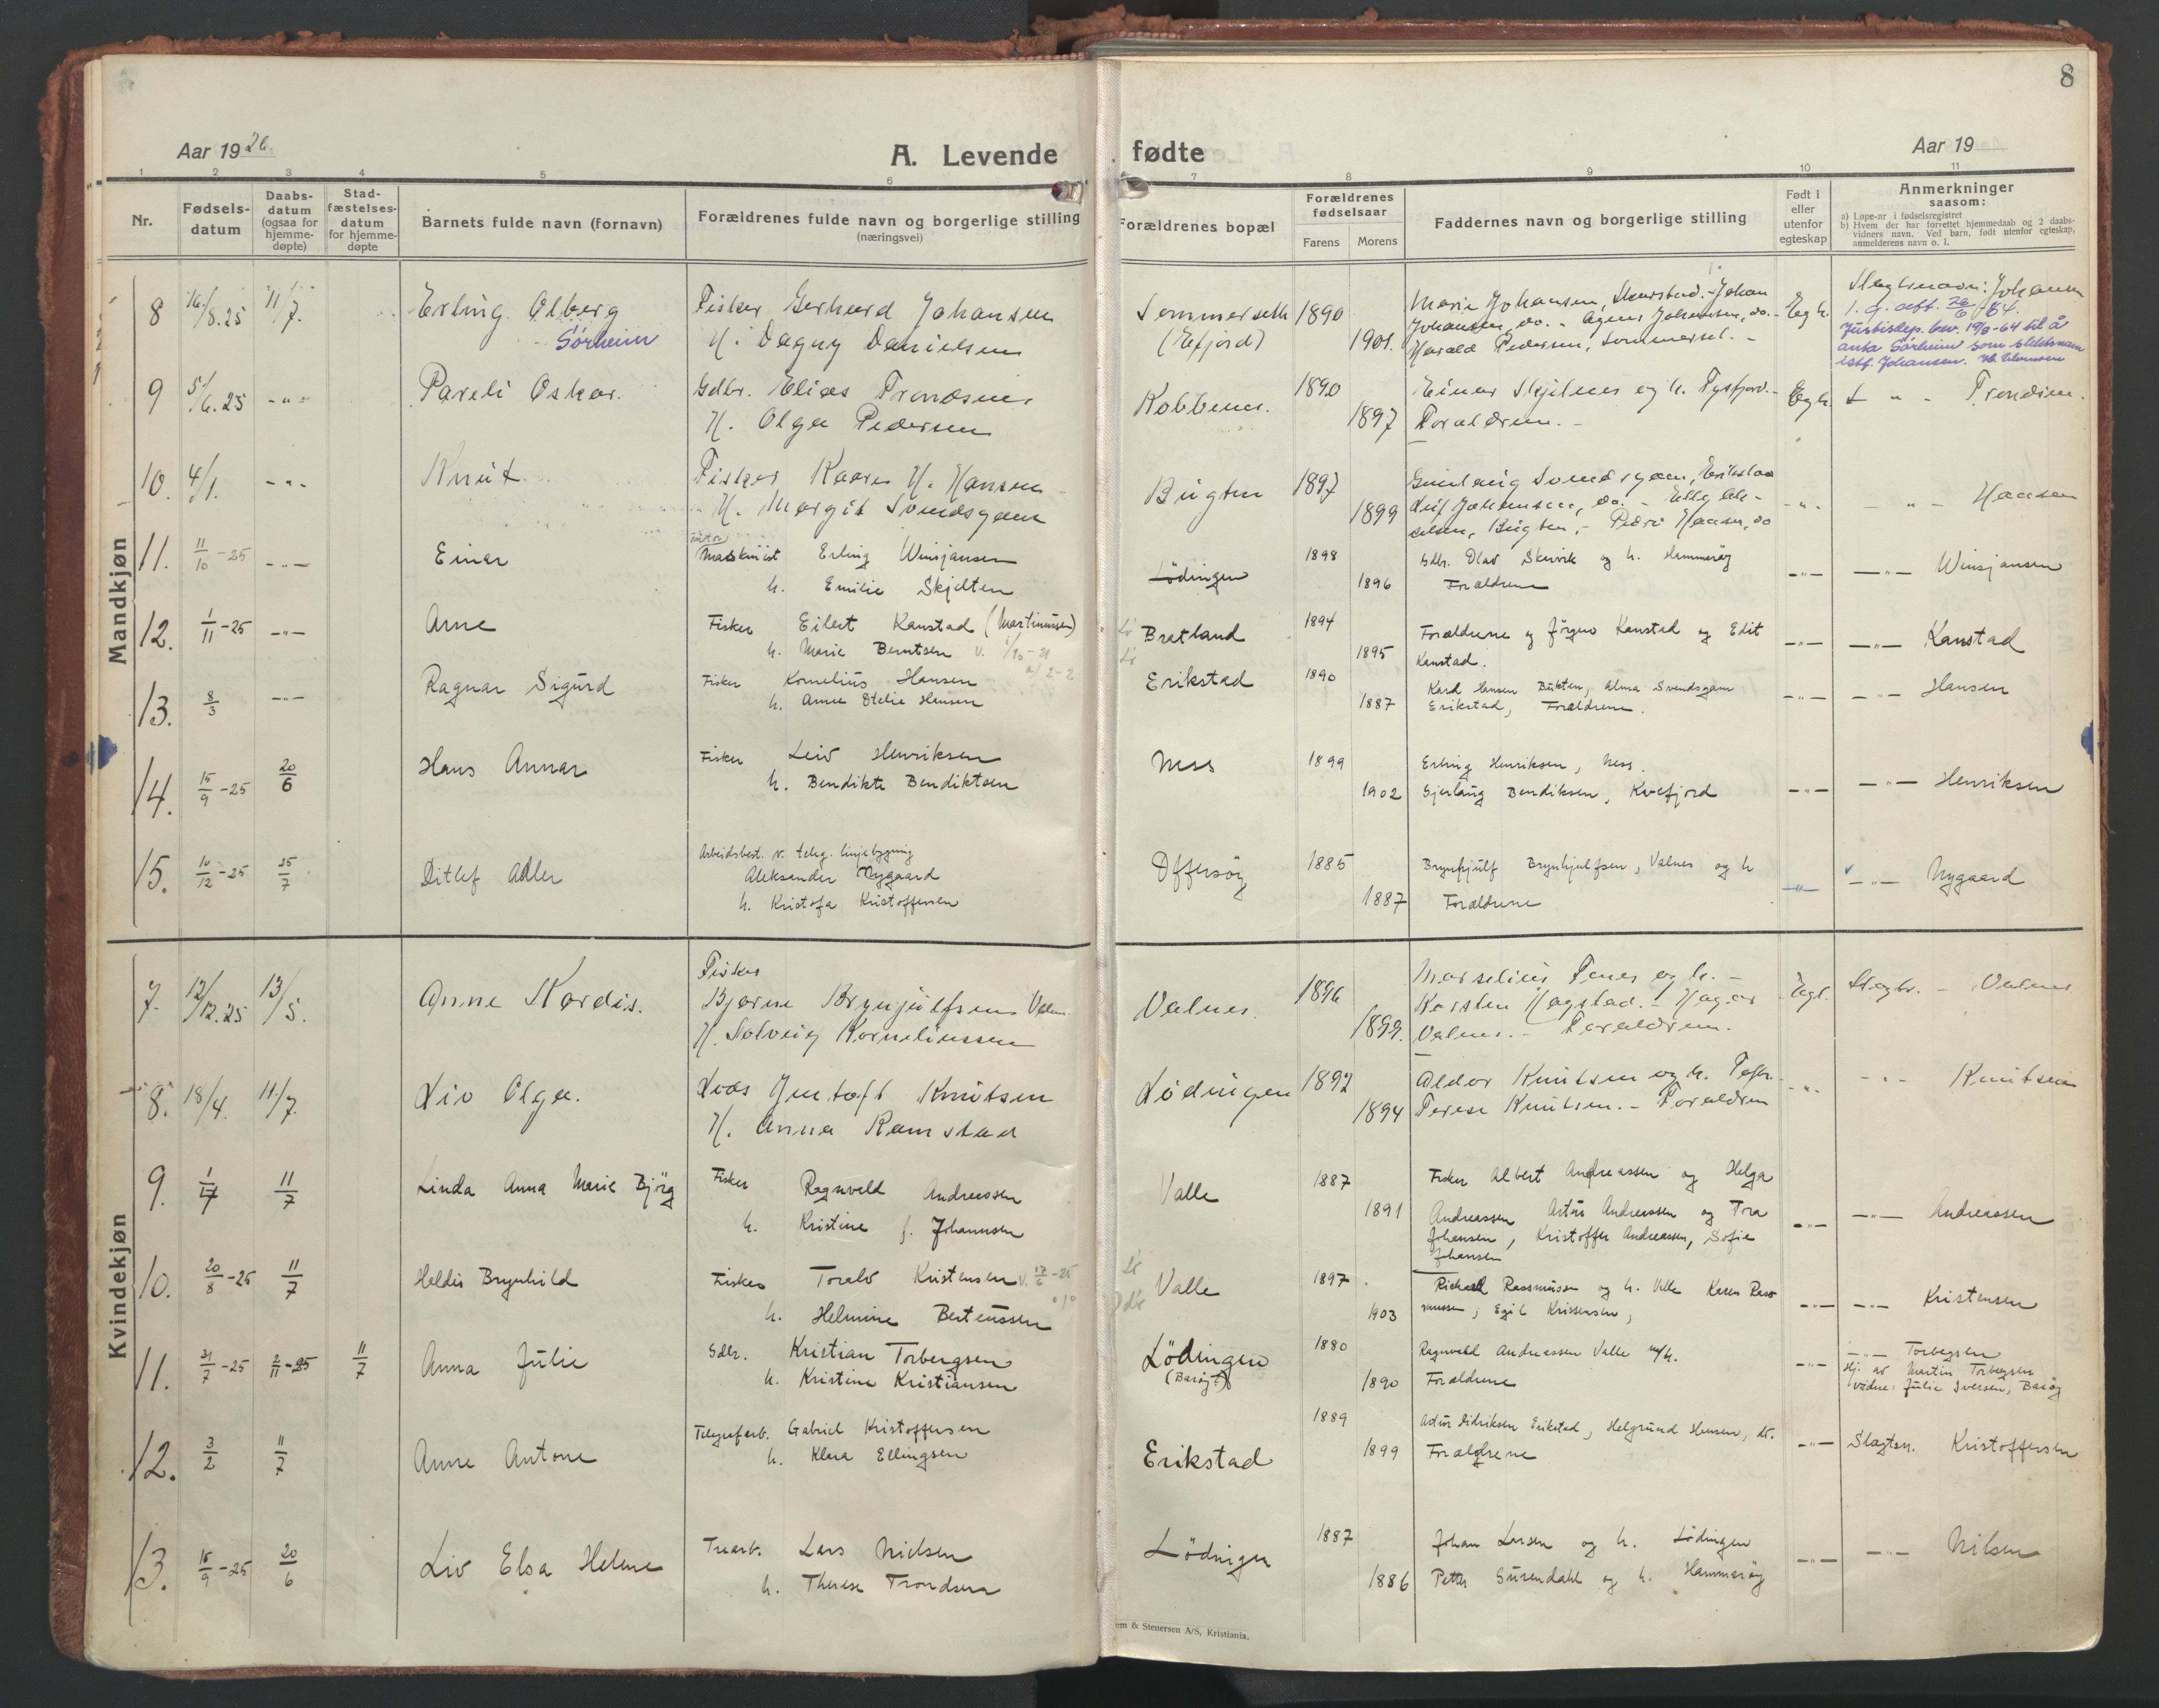 8
Aar 1926.
A. Levende
fødte
Aar 19
1 2 3 4 5 6 7 8 9 10 11
Nr.
Fødsels-
datum
Daabs-
datum
(ogsaa for
hjemme-
døpte)
Stad-
fæstelses-
datum
for hjemme-
døpte
Barnets fulde navn (fornavn)
Forældrenes fulde navn og borgerlige stilling
(næringsvei)
Forældrenes bopæl
Forældrenes
fødselsaar
Farens Morens
Faddernes navn og borgerlige stilling
Født i
eller
utenfor
egteskap
Anmerkninger
saasom:
a) Løpe-nr i fødselsregistret
b) Hvem der har forrettet hjemmedaab og 2 daabs-
vidners navn. Ved barn, født utenfor egteskap,
anmelderens navn o. l.
Mandkjøn
8 16/8.25 11/7. Erling Olberg
Sørheim
Fisker Gerhard Johansen
H. Dagny Danielsen
Sommerseth
(Efjord)
1890
1901.
Marie Johansen, Johan
Johansen, do. - Agnes Johansen, do. -
Harald Pedersen, Sommerset. -
Egt.
Slegtsnavn: Johansen
1. g. att. 26/6 64.
Justisdep. bev. 19/8-64 til å
anta Sørheim som slektsnavn
istf. Johansen.
9 5/6.25 -"- Pareli Oskar.
Gdbr. Elias Trondsen
H. Olga Pedersen
Kobbenes.
1890
1897
Einar Skjelnes og h. Tysfjord. -
Forældrene. -
Egt.
" - Trondsen.
10. 4/1. -"- Knut
Fisker Kaare H. Hansen
H. Margit Svendsgam
Bugten
1897
1899
Gunlaug Svendsgam, Erikstad
Leif Johansen, do. -
Bugten, - Peder Hansen, do
-"-
- " - Hansen
11. 11/10-25 -"- Einar
motor
Maskinist Erling Winsjansen
h. Emilie Skjelten
Lødingen
1898
1896
Gdbr. Olav Skarvik og h. Hammerøy
Forældrene
-"-
-"- Winsjansen
12. 1/11-25 -"- Arne
Fisker Eilert Kanstad (Martinussen)
h. Marie Berntsen
Bratland
1894
1895
Forældrene og Jørgen Kanstad og Edit
Kanstad.
-"-
-"- Kanstad
13. 8/3 -"- Ragnar Sigurd
Fisker Kornelius Hansen
h. Anne Otelie Hansen
Erikstad
1890
1887
Kard Hansen Bukten, Alma Svendsgam
Erikstad, Forældrene.
-"-
-"- Hansen
14. 15/9-25 20/6 Hans Annar
Fisker Leiv Henriksen
h. Bendikte Bendiktsen
Ness
1899
1902
Erling Henriksen, Ness.
Gjerlaug Bendiksen, Kvefjord
-"-
-"- Henriksen
15. 10/12-25 25/7 Ditlef Adler
Arbeidsbest. v. teleg. linjebygning
Aleksander Nygaard
h. Kristofa Kristoffersen
Offersøy
1885
1887
Brynhjulf Brynhjulfsen, Valnes og h
Forældrene
-"-
-"- Nygaard
Kvindekjøn
7. 12/12.25 13/5. Anne Kordis.
Fisker
Bjarne Brynjulfsen Valn.
H. Solveig Korneliussen
Valnes.
1896
1899.
Marselius Penes og h. -
Karsten Hagstad. - Hagar
Valnes. - Forældrene.
Egt.
Slegtn. - Valnes
8. 18/4. 11/7. Liv Olga.
Loos Jentoft Knutsen
H. Anna Ramstad
Lødingen
1892
1894
Aldor Knutsen og h.
Terese Knutsen. - Forældrene
-"-
-"- Knutsen
9. 11/7 Linda Anna Marie Bjørg
Fisker Ragnvald Andreassen
h. Kristine f. Johannsen
Valle
1887
1891
Fisker Albert Andreassen og Helga
Andreassen, Artur Andreassen og Tra
Johansen, Kristoffer Andreassen, Sofie
Johansen
-"-
-"- Andreassen
10. 20/8-25 11/7 Haldis Brynhild
Fisker Toralv Kristensen v. 17/6-25
h. Helmine Berteussen
Valle
1897
1903
Richard Rassmussen og h. Valle Karen Rass-
mussen, Egil Kristensen,
-"-
-"- Kristensen
11. 31/7-25 2/11-25 11/7 Anna Julie
Gdbr. Kristian Torbergsen
h. Kristine Kristiansen
Lødingen
(Barøy)
1880
1890
Ragnvald Andreassen Valle m/h.
Forældrene
-"-
-"- Torbegsen
Hj. av Martin Torbegsen
vidne: Julie Iversen, Barøy
12. 3/2 11/7 Anne Antone
Telegrafarb. Gabriel Kristoffersen
h. Klara Ellingsen
Erikstad
1889
1899
Artur Didriksen Erikstad, Helgrund Hansen, dt.
Forældrene
-"-
Slægtsn. Kristoffersen
13. 15/9-25 20/6 Liv Elsa Helene
Trearb. Lars Nielsen
h. Therese Trondsen
Lødingen
1887
1886
Johan Larsen og h. Lødingen
Petter Surendahl og h. Hammerøy
-"-
-"- Nilsen
em & Stenersen A/S, Kristiania.